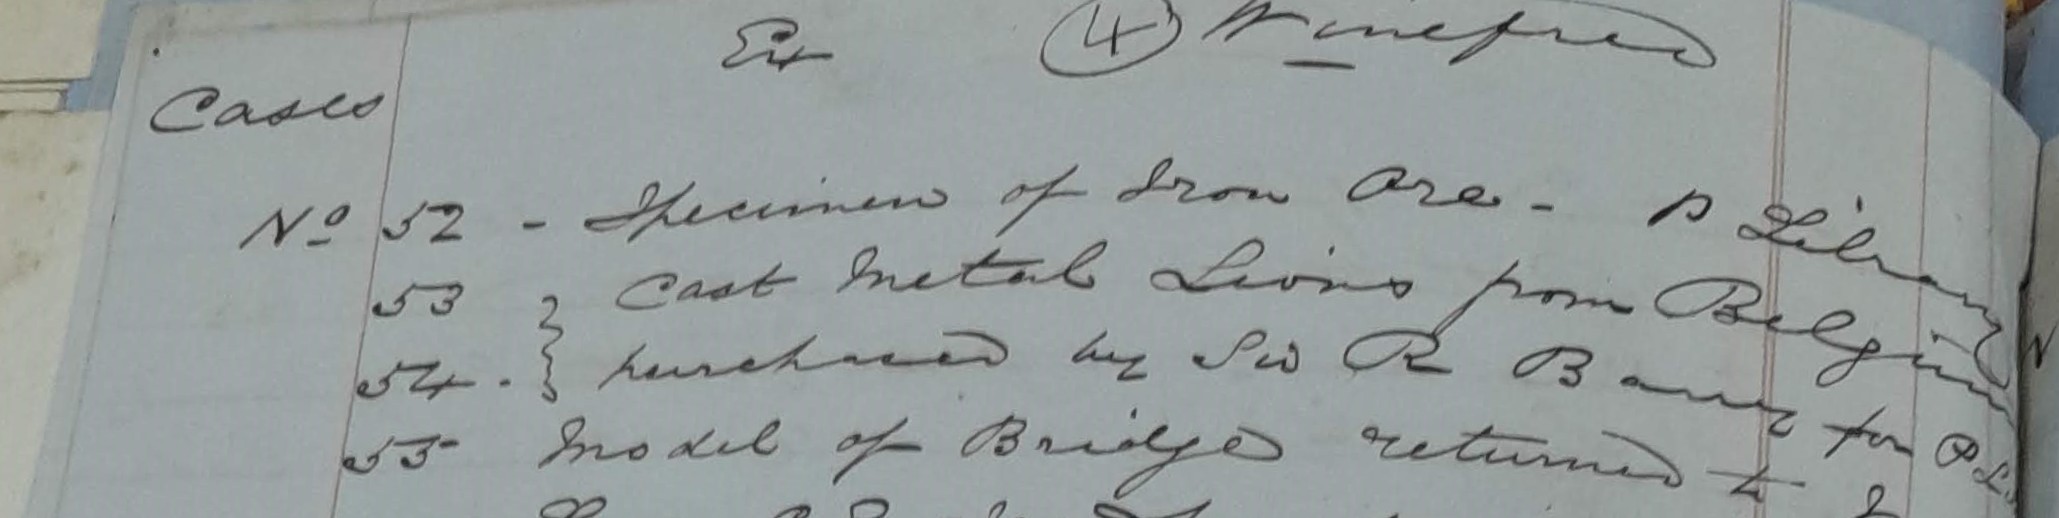 Ex (4) Winefred
Cases
No 52 - Specimen of Iron Ore - P Library
53 } Cast Metal Lions from Belgium
54 . } purchased by Sir R Barry for P.L.
55 Model of Bridge returned to